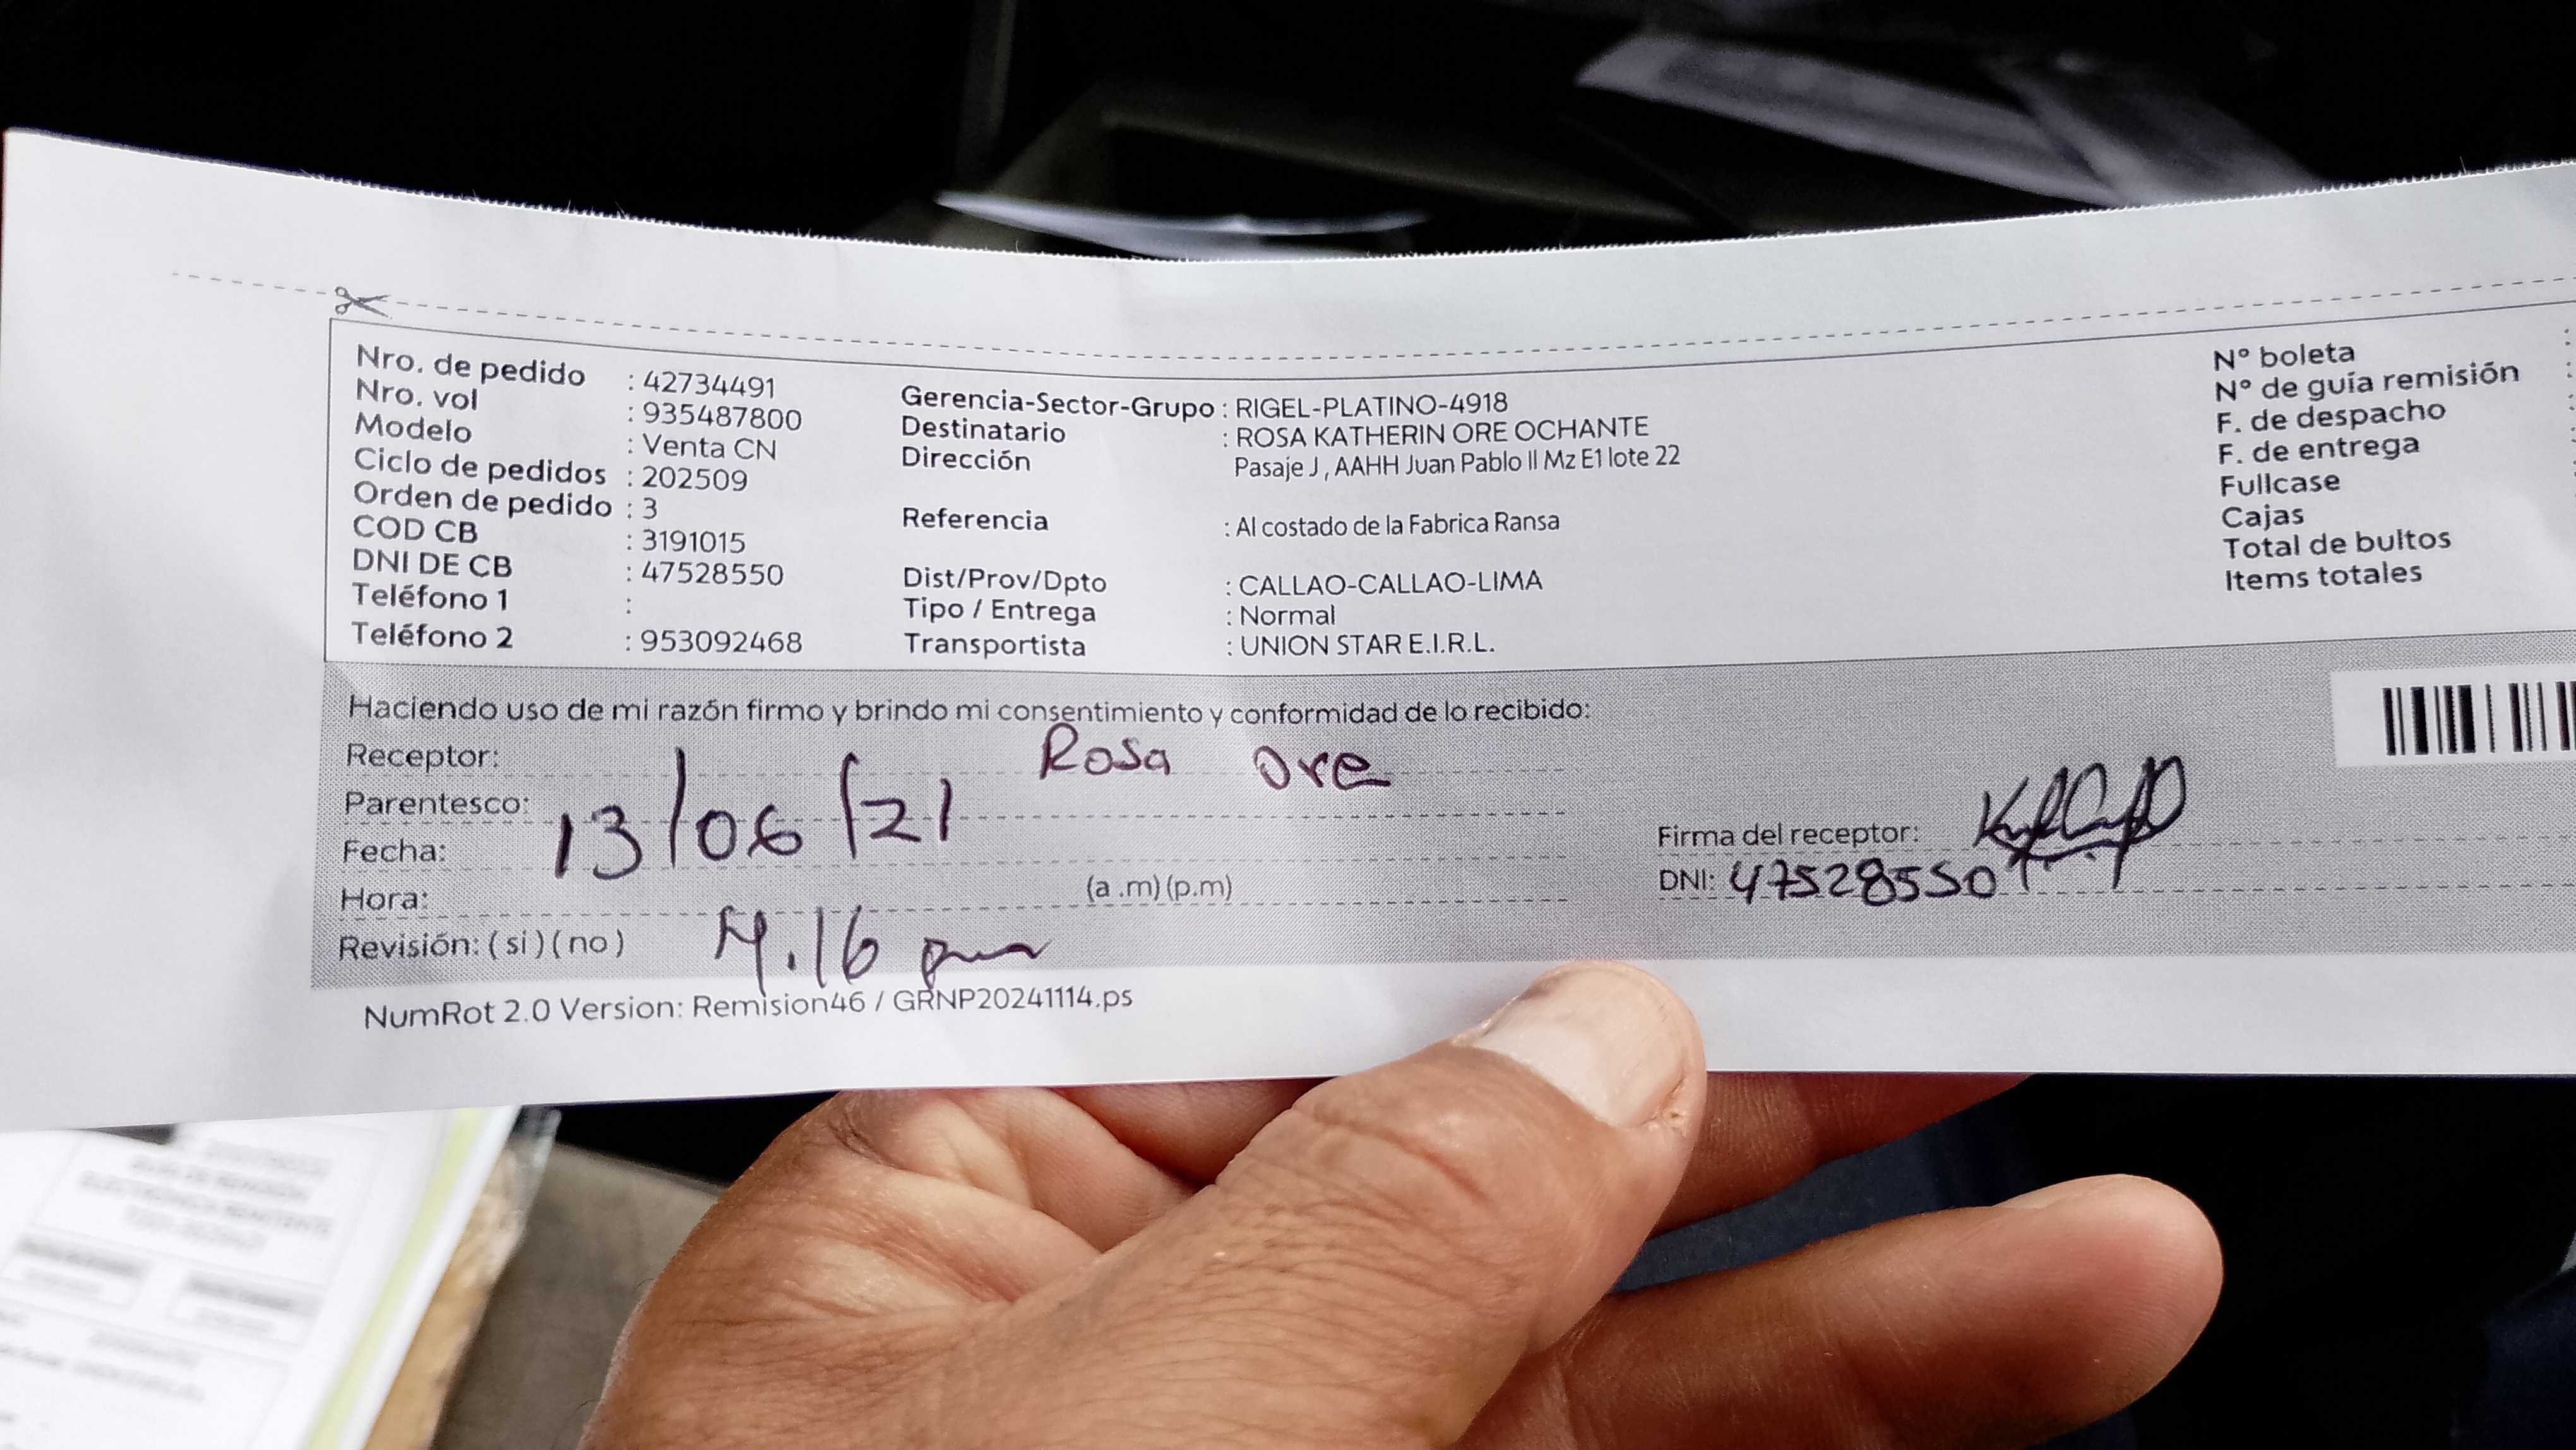 Nro. de pedido : 42734491
Nro. vol : 935487800
Modelo : Venta CN
Ciclo de pedidos : 202509
Orden de pedido : 3
COD CB : 3191015
DNI DE CB : 47528550
Teléfono 1 :
Teléfono 2 : 953092468
Gerencia-Sector-Grupo : RIGEL-PLATINO-4918
Destinatario : ROSA KATHERIN ORE OCHANTE
Dirección Pasaje J , AAHH Juan Pablo II Mz E1 lote 22
Referencia : Al costado de la Fabrica Ransa
Dist/Prov/Dpto : CALLAO-CALLAO-LIMA
Tipo / Entrega : Normal
Transportista : UNION STAR E.I.R.L.
N° boleta :
N° de guía remisión :
F. de despacho :
F. de entrega :
Fullcase
Cajas
Total de bultos
Items totales
Haciendo uso de mi razón firmo y brindo mi consentimiento y conformidad de lo recibido:
Receptor: Rosa Ore
Parentesco:
Fecha: 13/06/21
Hora: (a .m) (p.m)
Revisión: ( si ) ( no ) 4.16 pm
Firma del receptor:
DNI: 47528550
NumRot 2.0 Version: Remision46 / GRNP20241114.ps